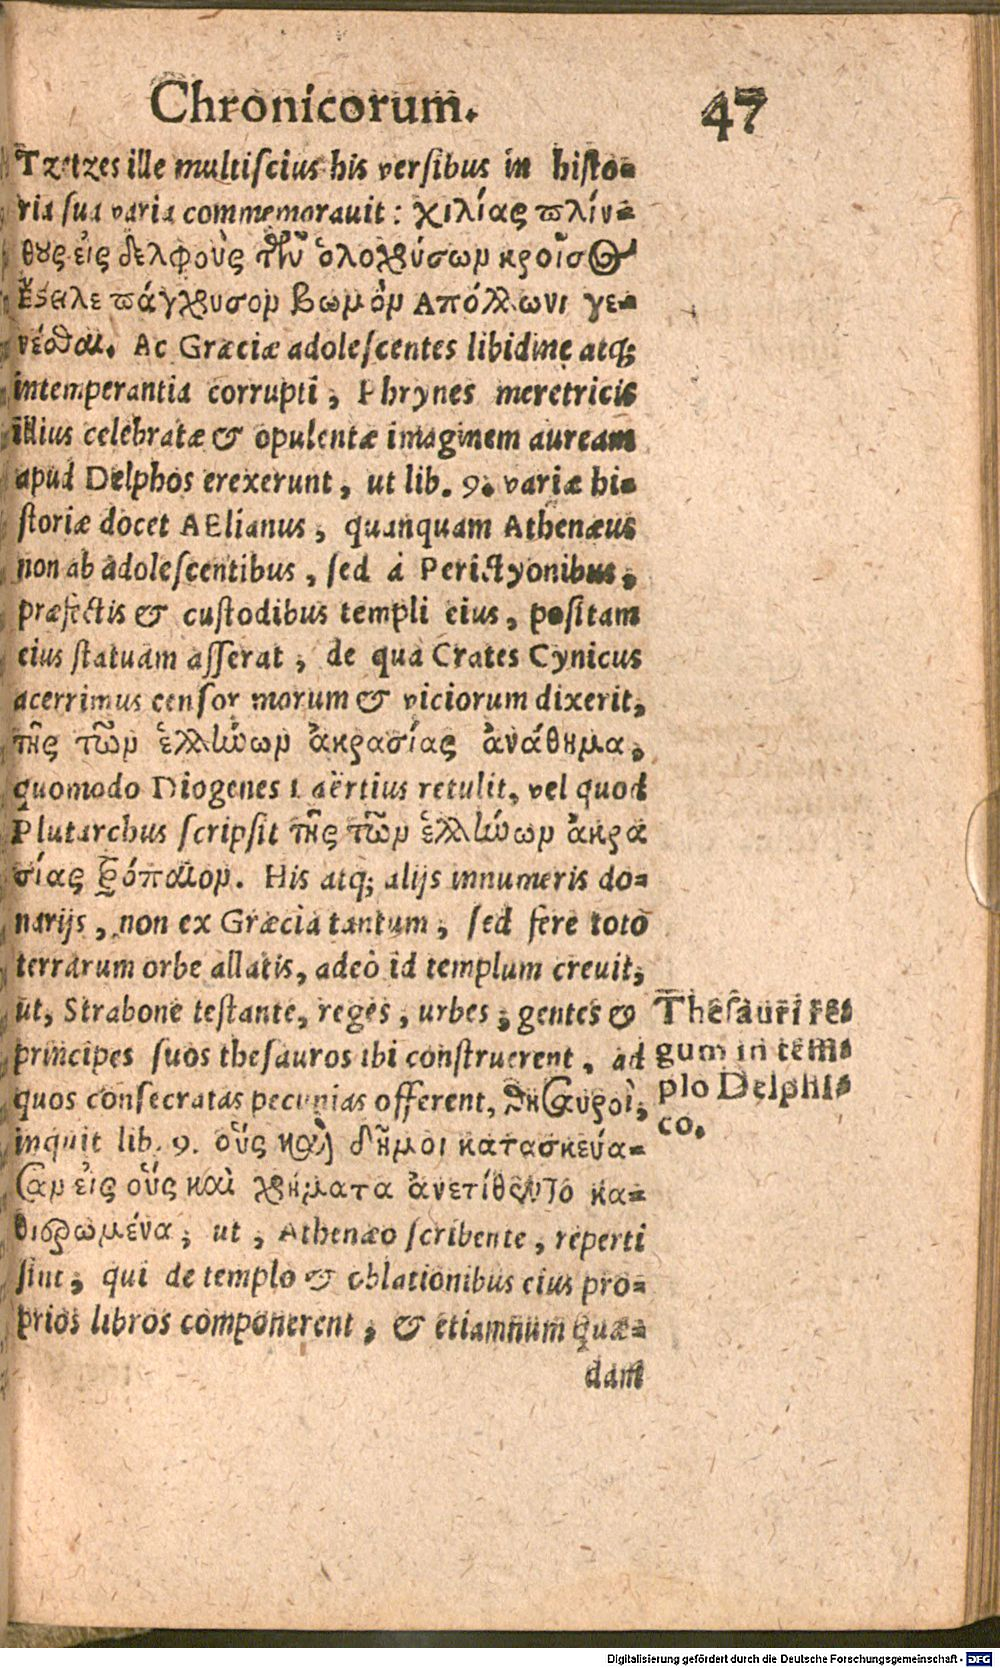 Chronicorum. 47
Tzetzes ille multiscius his versibus in histo-
ria sua varia commemorauit: χιλίας πλίν-
θους εἰς δελφοὺς τῶν ὁλοχρύσων κροῖσος
Ἔβαλε πάγχρυσον βωμὸν Ἀπόλλωνι γε-
νέσθαι. Ac Græciæ adolescentes libidine atq;
intemperantia corrupti, Phrynes meretricis
illius celebratæ & opulentæ imaginem auream
apud Delphos erexerunt, ut lib. 9. variæ hi-
storiæ docet AElianus, quanquam Athenæus
non ab adolescentibus, sed à Perictyonibus,
præfectis & custodibus templi eius, positam
eius statuam asserat, de qua Crates Cynicus
acerrimus censor morum & viciorum dixerit,
τῆς τῶν ἑλλήνων ἀκρασίας ἀνάθημα,
quomodo Diogenes Laërtius retulit, vel quod
Plutarchus scripsit τῆς τῶν ἑλλήνων ἀκρα
σίας τρόπαιον. His atq; alijs innumeris do-
narijs, non ex Græcia tantum, sed fere toto
terrarum orbe allatis, adeò id templum creuit,
ut, Strabone testante, reges, urbes, gentes &
principes suos thesauros ibi construerent, ad
quos consecratas pecunias offerent, θησαυροὶ,
inquit lib. 9. οὓς καὶ δῆμοι κατασκεύα-
σαν εἰς οὓς καὶ χρήματα ἀνετίθεντο κα-
θιερωμένα, ut, Athenæo scribente, reperti
sint, qui de templo & oblationibus eius pro-
prios libros componerent, & etiamnum quæ-
dam
Thesauri re-
gum in tem-
plo Delphi-
co.
Digitalisierung gefördert durch die Deutsche Forschungsgemeinschaft - DFG